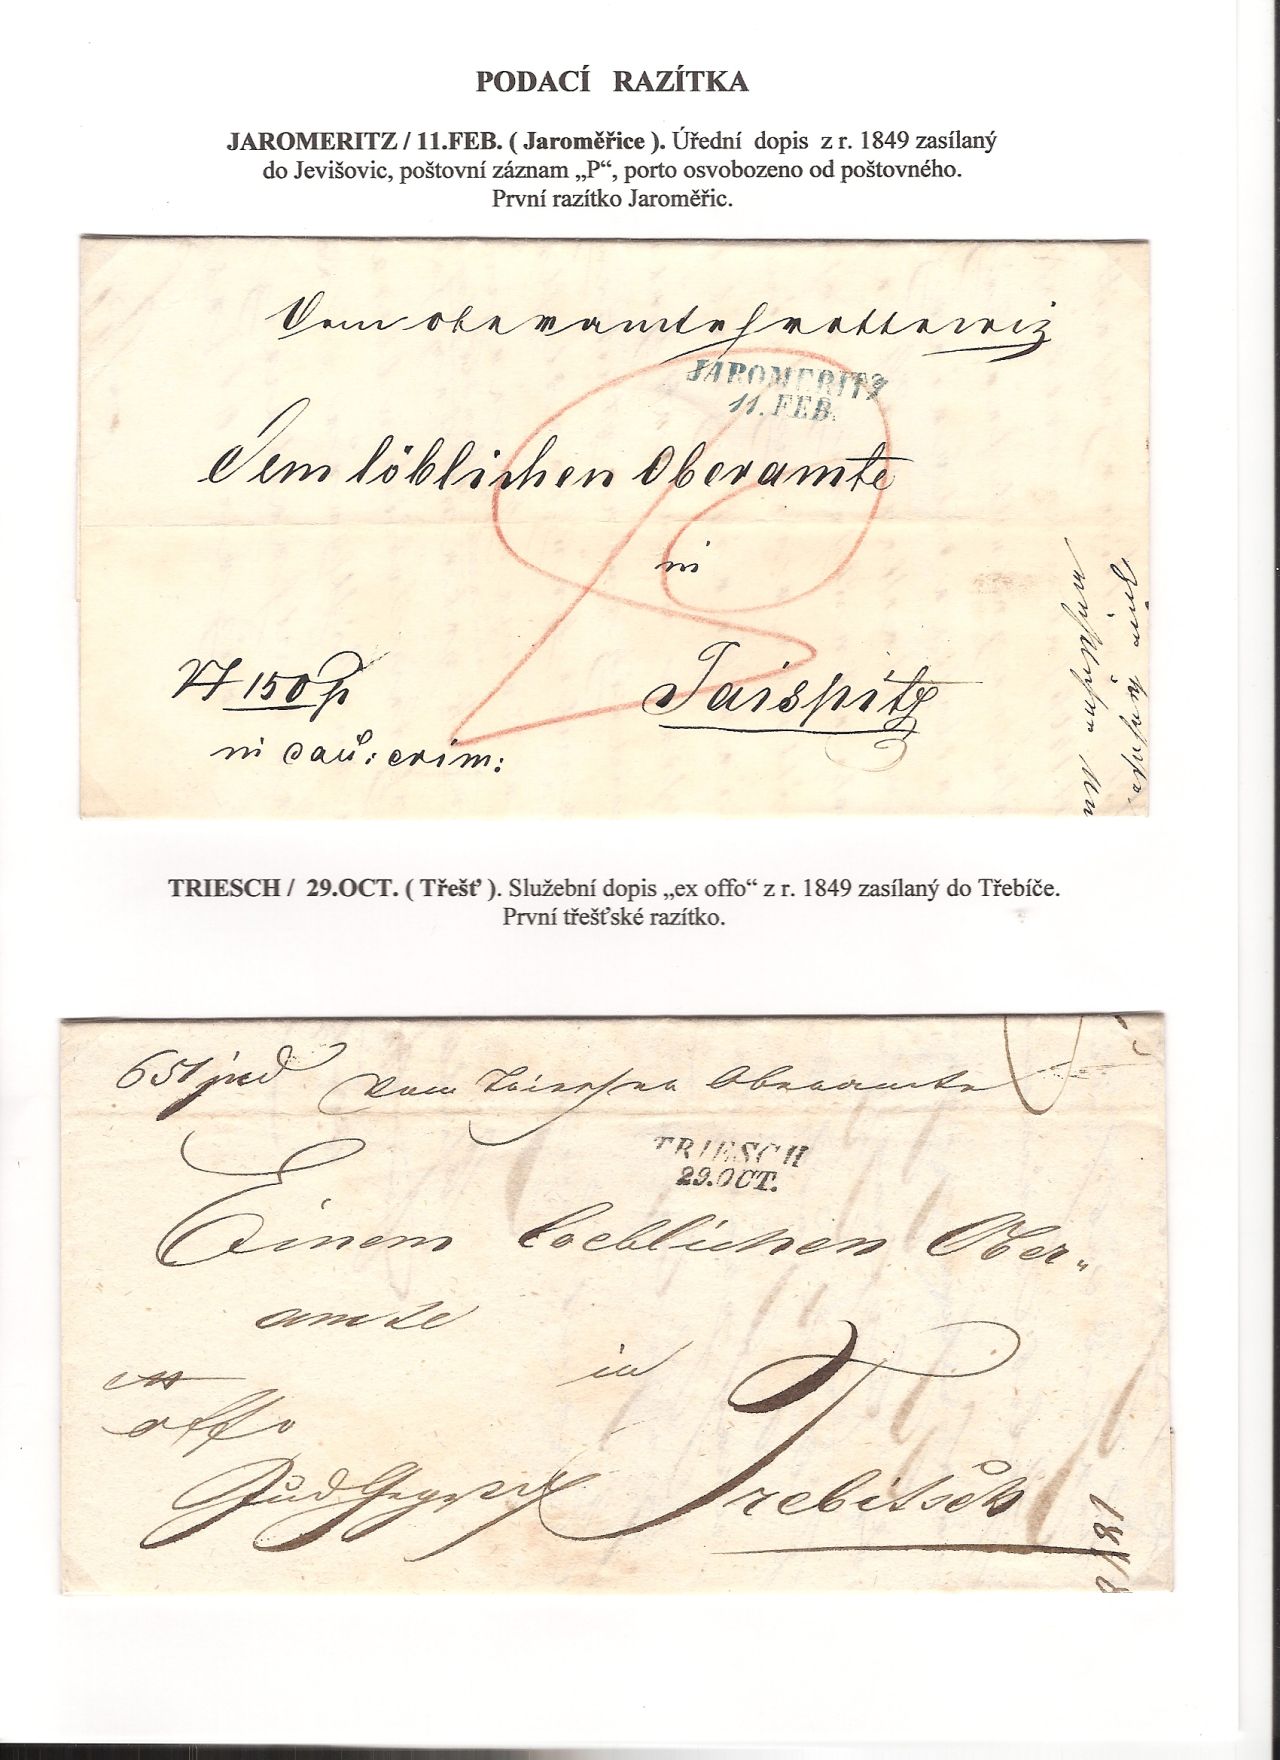 PODACÍ RAZÍTKA
JAROMERITZ / 11.FEB. ( Jaroměřice ). Úřední dopis z r. 1849 zasílaný
do Jevišovic, poštovní záznam „P“, porto osvobozeno od poštovného.
První razítko Jaroměřic.
JAROMERITZ
11. FEB.
Dem löblichen Oberamte
in
150
Jaispitz
in cau: crim:
TRIESCH / 29.OCT. ( Třešť ). Služební dopis „ex offo“ z r. 1849 zasílaný do Třebíče.
První třešťské razítko.
651 jud Vom Oberamte
TRIESCH
29.OCT.
Einem loeblichen Ober„
amte
in
ex
offo
Trebitsch